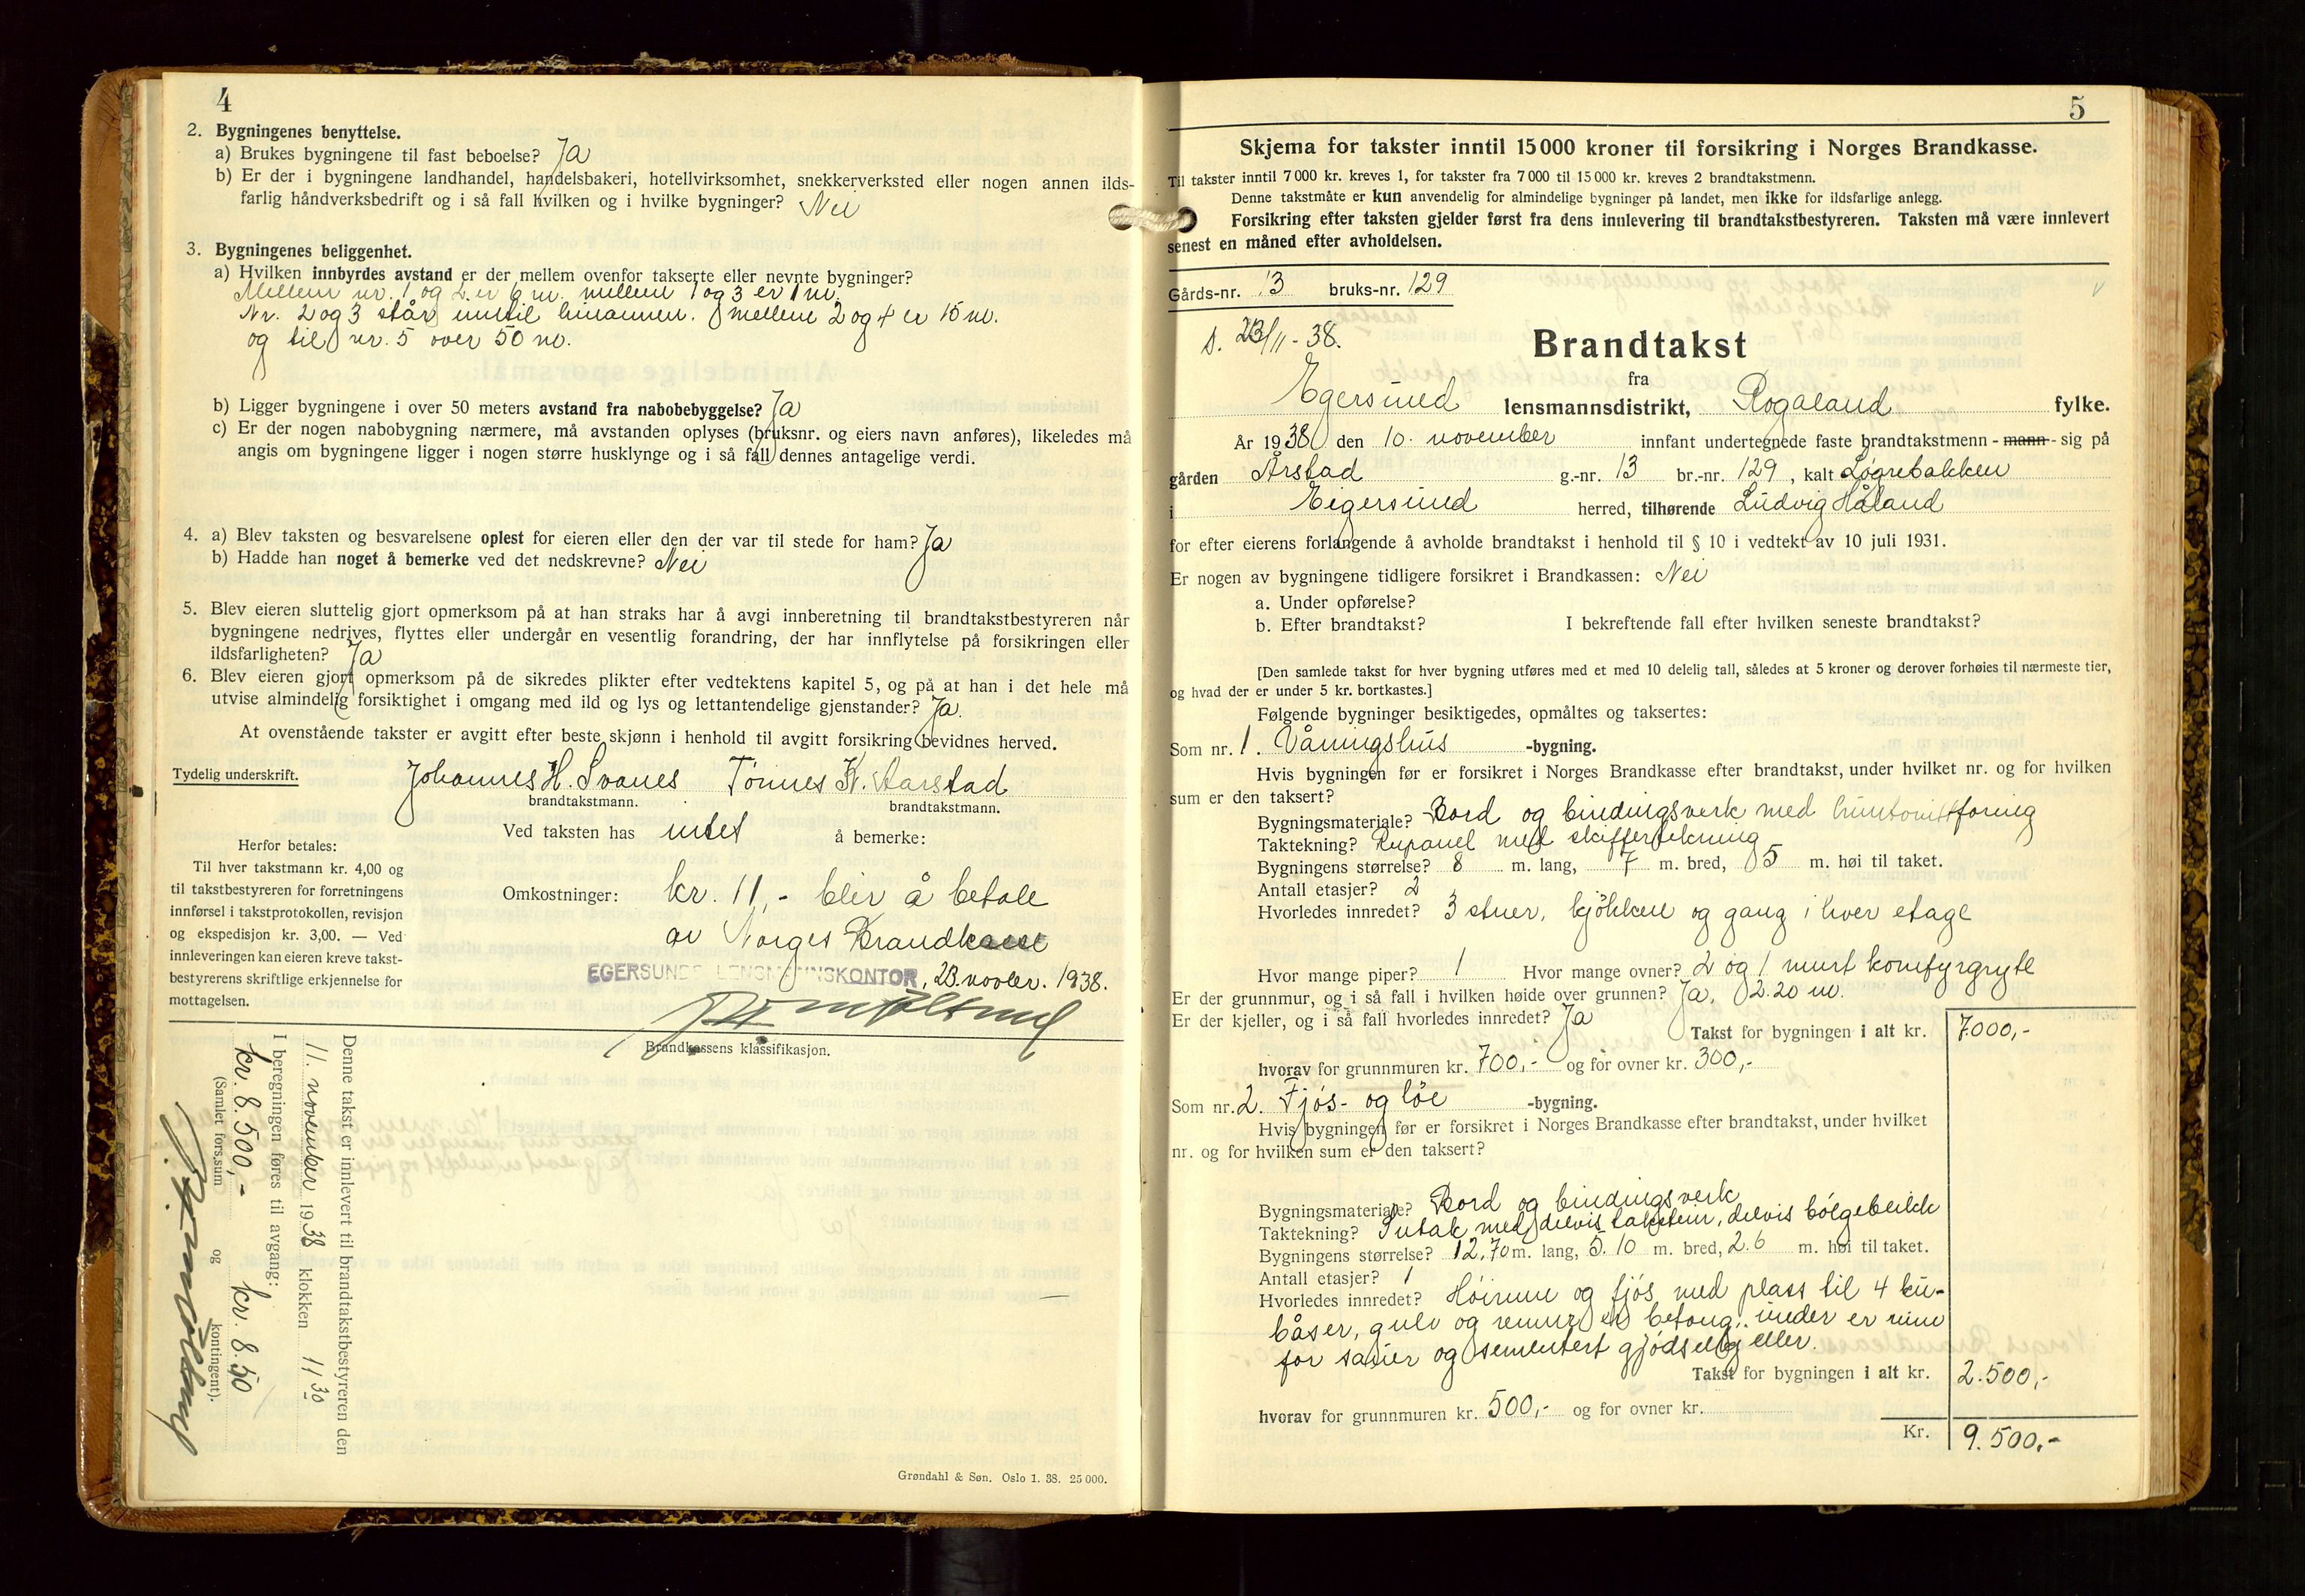 4
2. Bygningenes benyttelse.
a) Brukes bygningene til fast beboelse? Ja
b) Er der i bygningene landhandel, handelsbakeri, hotellvirksomhet, snekkerverksted eller nogen annen ilds-
farlig håndverksbedrift og i så fall hvilken og i hvilke bygninger? Nei
3. Bygningenes beliggenhet.
a) Hvilken innbyrdes avstand er der mellem ovenfor takserte eller nevnte bygninger?
Mellem nr. 1 og 2 er 6 m. mellem 1 og 3 er 1 m.
Nr. 2 og 3 står inntil hinannen. mellem 2 og 4 er 15 m.
og til nr. 5 over 50 m.
b) Ligger bygningene i over 50 meters avstand fra nabobebyggelse? Ja
c) Er der nogen nabobygning nærmere, må avstanden oplyses (bruksnr. og eiers navn anføres), likeledes må
angis om bygningene ligger i nogen større husklynge og i så fall dennes antagelige verdi.
4. a) Blev taksten og besvarelsene oplest for eieren eller den der var til stede for ham? Ja
b) Hadde han noget å bemerke ved det nedskrevne? Nei
5. Blev eieren sluttelig gjort opmerksom på at han straks har å avgi innberetning til brandtakstbestyreren når
bygningene nedrives, flyttes eller undergår en vesentlig forandring, der har innflytelse på forsikringen eller
ildsfarligheten? Ja
6. Blev eieren gjort opmerksom på de sikredes plikter efter vedtektens kapitel 5, og på at han i det hele må
utvise almindelig forsiktighet i omgang med ild og lys og lettantendelige gjenstander? Ja.
At ovenstående takster er avgitt efter beste skjønn i henhold til avgitt forsikring bevidnes herved.
Tydelig underskrift. Johannes H. Svanes Tønnes K. Aarstad
brandtakstmann. brandtakstmann.
Ved taksten has intet å bemerke:
Herfor betales:
Til hver takstmann kr. 4,00 og
til takstbestyreren for forretningens
innførsel i takstprotokollen, revisjon
og ekspedisjon kr. 3,00. — Ved
innleveringen kan eieren kreve takst-
bestyrerens skriftlige erkjennelse for
mottagelsen.
Omkostninger: kr. 11,- blir å betale
av Norges Brandkasse
EGERSUNDS LENSMANNSKONTOR, 23. novbr. 1938.
Brandkassens klassifikasjon.
Denne takst er innlevert til brandtakstbestyreren den
11. november 1938 klokken 11 30
I beregningen føres til avgang:
kr. 8.500,- kr. 8.50
(Samlet fors.sum og kontingent).
Grøndahl & Søn. Oslo 1. 38. 25 000.
5
Skjema for takster inntil 15 000 kroner til forsikring i Norges Brandkasse.
Til takster inntil 7 000 kr. kreves 1, for takster fra 7 000 til 15 000 kr. kreves 2 brandtakstmenn.
Denne takstmåte er kun anvendelig for almindelige bygninger på landet, men ikke for ildsfarlige anlegg.
Forsikring efter taksten gjelder først fra dens innlevering til brandtakstbestyreren. Taksten må være innlevert
senest en måned efter avholdelsen.
Gårds-nr. 13 bruks-nr. 129
s. 23/11-38.
Brandtakst
fra
Egersund lensmannsdistrikt, Rogaland fylke.
År 1938 den 10. november innfant undertegnede faste brandtakstmenn - mann - sig på
gården Årstad g.-nr. 13 br.-nr. 129, kalt Løgrebakken
i Eigersund herred, tilhørende Ludvig Håland
for efter eierens forlangende å avholde brandtakst i henhold til § 10 i vedtekt av 10 juli 1931.
Er nogen av bygningene tidligere forsikret i Brandkassen: Nei
a. Under opførelse?
b. Efter brandtakst? I bekreftende fall efter hvilken seneste brandtakst?
[Den samlede takst for hver bygning utføres med et med 10 delelig tall, således at 5 kroner og derover forhøies til nærmeste tier,
og hvad der er under 5 kr. bortkastes.]
Følgende bygninger besiktigedes, opmåltes og taksertes:
Som nr. 1. Våningshus -bygning.
Hvis bygningen før er forsikret i Norges Brandkasse efter brandtakst, under hvilket nr. og for hvilken
sum er den taksert?
Bygningsmateriale? Bord og bindingsverk med huntonittforing
Taktekning? Rupanel med skiffertekning
Bygningens størrelse? 8 m. lang, 7 m. bred, 5 m. høi til taket.
Antall etasjer? 2
Hvorledes innredet? 3 stuer, kjøkken og gang i hver etage
Hvor mange piper? 1 Hvor mange ovner? 2 og 1 murt komfyrgryte
Er der grunnmur, og i så fall i hvilken høide over grunnen? Ja, 2.20 m.
Er der kjeller, og i så fall hvorledes innredet? Ja
Takst for bygningen i alt kr. 7000,-
hvorav for grunnmuren kr. 700,- og for ovner kr. 300,-
Som nr. 2. Fjøs- og løe -bygning.
Hvis bygningen før er forsikret i Norges Brandkasse efter brandtakst, under hvilket
nr. og for hvilken sum er den taksert?
Bygningsmateriale? Bord og bindingsverk
Taktekning? Sutak med delvis takstein, delvis bølgeblikk
Bygningens størrelse? 12.70 m. lang, 5.10 m. bred, 2.6 m. høi til taket.
Antall etasjer? 1
Hvorledes innredet? Høirum og fjøs med plass til 4 ku-
båser, gulv og renner er betong, under er rum
for sauer og sementert gjødselkjeller.
Takst for bygningen i alt kr. 2.500,-
hvorav for grunnmuren kr. 500,- og for ovner kr.
Kr. 9.500,-